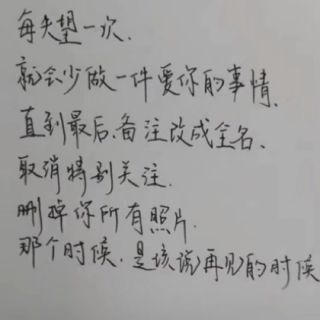 每失望一次.
就会少做一件爱你的事情.
直到最后.备注改成全名.
取消特别关注.
删掉你所有照片.
那个时候.是该说再见的时候